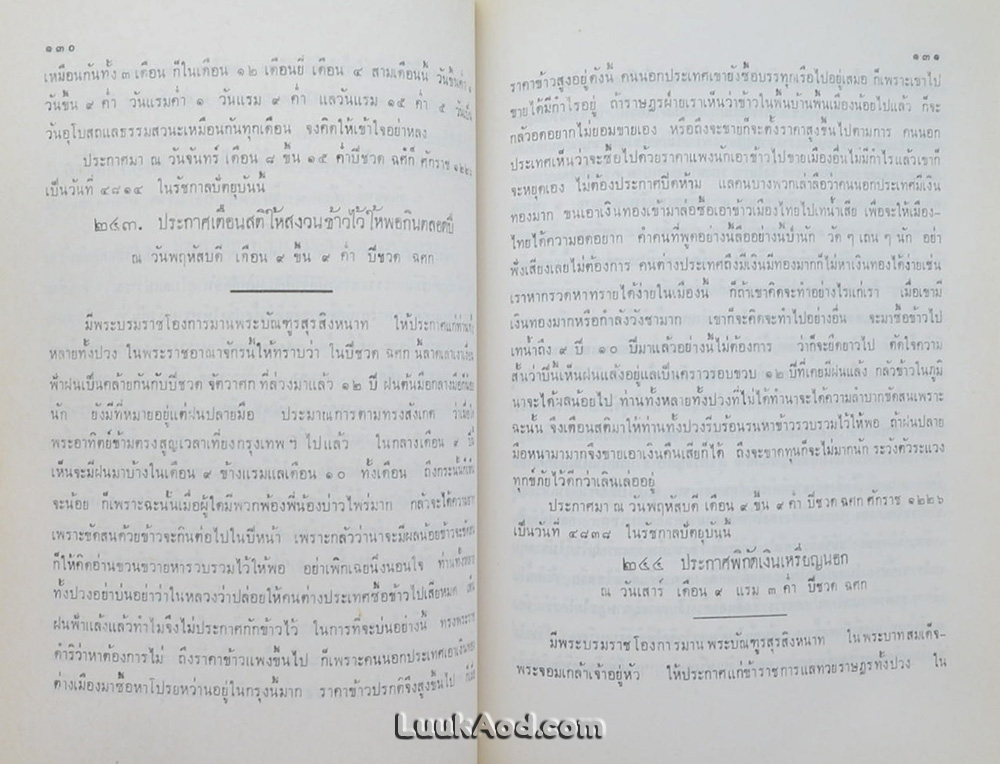 ๑๓๐
เหมือนกันทั้ง ๓ เดือน ก็ในเดือน ๑๒ เดือนยี่ เดือน ๔ สามเดือนนี้ วันขึ้นค่ำ ๑
วันขึ้น ๙ ค่ำ วันแรมค่ำ ๑ วันแรม ๙ ค่ำ แลวันแรม ๑๕ ค่ำ ๕ วันเป็น
วันอุโบสถแลธรรมสวนะเหมือนกันทุกเดือน จงคิดให้เข้าใจอย่าหลง
ประกาศมา ณ วันจันทร์ เดือน ๘ ขึ้น ๑๕ ค่ำปีชวด ฉศก ศักราช ๑๒๒๖
เป็นวันที่ ๔๘๑๔ ในรัชกาลปัตยุบันนี้
๒๔๓. ประกาศเตือนสติให้สงวนข้าวไว้ให้พอกินตลอดปี
ณ วันพฤหัสบดี เดือน ๙ ขึ้น ๙ ค่ำ ปีชวด ฉศก
มีพระบรมราชโองการมานพระบัณฑูรสุรสิงหนาท ให้ประกาศแก่ท่าน
หลายทั้งปวง ในพระราชอาณาจักรนี้ให้ทราบว่า ในปีชวด ฉศก นี้
ฟ้าฝนเป็นคล้ายกันกับปีชวด จัตวาศก ที่ล่วงมาแล้ว ๑๒ ปี ฝนต้นมือกลางมือก็น้อย
นัก ยังมีที่หมายอยู่แต่ฝนปลายมือ ประมาณการตามทรงสังเกต ว่าเมื่อ
พระอาทิตย์ข้ามตรงสูญเวลาเที่ยงกรุงเทพ ฯ ไปแล้ว ในกลางเดือน ๙ ปีนี้
เห็นจะมีฝนมาบ้างในเดือน ๙ ข้างแรมแลเดือน ๑๐ ทั้งเดือน ถึงกระนั้นก็
จะน้อย ก็เพราะฉะนั้นเมื่อผู้ใดมีพวกพ้องพี่น้องบ่าวไพร่มาก กลัวจะได้ความ
เพราะขัดสนด้วยข้าวจะกินต่อไปในปีหน้า เพราะกลัวว่านาจะมีผลน้อยข้าวจะขัดสน
ก็ให้คิดอ่านขวนขวายหารวบรวมไว้ให้พอ อย่าเพิกเฉยนิ่งนอนใจ ท่านทั้งหลาย
ทั้งปวงอย่าบ่นอย่าว่าในหลวงว่าปล่อยให้คนต่างประเทศซื้อข้าวไปเสียหมด เห็น
ฝนฟ้าแล้งแล้วทำไมจึงไม่ประกาศกักข้าวไว้ ในการที่จะบ่นอย่างนี้ ทรงพระราช
ดำริว่าหาต้องการไม่ ถึงราคาข้าวแพงขึ้นไป ก็เพราะคนนอกประเทศเอาเงิน
ต่างเมืองมาซื้อหาโปรยหว่านอยู่ในกรุงนี้มาก ราคาข้าวปรกติจึงสูงขึ้นไป
๑๓๑
ราคาข้าวสูงอยู่ดังนี้ คนนอกประเทศเขายังซื้อบรรทุกเรือไปอยู่เสมอ ก็เพราะเขาไป
ขายได้มีกำไรอยู่ ถ้าราษฎรฝ่ายเราเห็นว่าข้าวในพื้นบ้านพื้นเมืองน้อยไปแล้ว ก็จะ
กลัวอดอยากไม่ยอมขายเอง หรือถึงจะขายก็จะตั้งราคาสูงขึ้นไปตามการ คนนอก
ประเทศเห็นว่าจะซื้อไปด้วยราคาแพงนักเอาข้าวไปขายเมืองอื่นไม่มีกำไรแล้วเขาก็
จะหยุดเอง ไม่ต้องประกาศปิดห้าม แลคนบางพวกเล่าลือว่าคนนอกประเทศมีเงิน
ทองมาก ขนเอาเงินทองเข้ามาล่อซื้อเอาข้าวเมืองไทยไปเทน้ำเสีย เพื่อจะให้เมือง-
ไทยได้ความอดอยาก คำคนที่พูดอย่างนี้ลืออย่างนี้บ้านัก วัด ๆ เถน ๆ นัก อย่า
ฟังเสียงเลยไม่ต้องการ คนต่างประเทศถึงมีเงินมีทองมากก็ไม่หาเงินทองได้ง่ายเช่น
เราหากรวดหาทรายได้ง่ายในเมืองนี้ ก็ถ้าเขาคิดจะทำอย่างไรแก่เรา เมื่อเขามี
เงินทองมากหรือกำลังวังชามาก เขาก็จะคิดจะทำไปอย่างอื่น จะมาซื้อข้าวไป
เทน้ำถึง ๙ ปี ๑๐ ปีมาแล้วอย่างนี้ไม่ต้องการ ว่าก็จะยืดยาวไป ตัดใจความ
สั้นว่าปีนี้เห็นฝนแล้งอยู่แลเป็นคราวรอบขวบ ๑๒ ปีที่เคยมีฝนแล้ง กลัวข้าวในภูมิ
นาจะได้ผลน้อยไป ท่านทั้งหลายทั้งปวงที่ไม่ได้ทำนาจะได้ความลำบากขัดสนเพราะ
ฉะนั้น จึงเตือนสติมาให้ท่านทั้งปวงรีบร้อนรนหาข้าวรวบรวมไว้ให้พอ ถ้าฝนปลาย
มือหนามามากจึงขายเอาเงินคืนเสียก็ได้ ถึงจะขาดทุนก็จะไม่มากนัก ระวังตัวระแวง
ทุกข์ภัยไว้ดีกว่าเลินเล่ออยู่
ประกาศมา ณ วันพฤหัสบดี เดือน ๙ ขึ้น ๙ ค่ำ ปีชวด ฉศก ศักราช ๑๒๒๖
เป็นวันที่ ๔๘๓๘ ในรัชกาลปัตยุบันนี้
๒๔๔ ประกาศพิกัดเงินเหรียญนอก
ณ วันเสาร์ เดือน ๙ แรม ๓ ค่ำ ปีชวด ฉศก
มีพระบรมราชโองการมานพระบัณฑูรสุรสิงหนาท ในพระบาทสมเด็จ-
พระจอมเกล้าเจ้าอยู่หัว ให้ประกาศแก่ข้าราชการแลทวยราษฎรทั้งปวง ใน
LuukAod.com